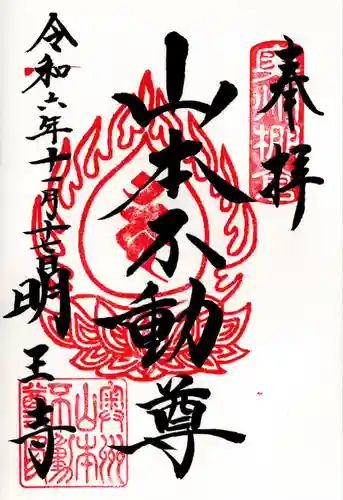 奉拝
山本不動尊
令和六年十一月廿七日
明王寺
奥州
山本
不動